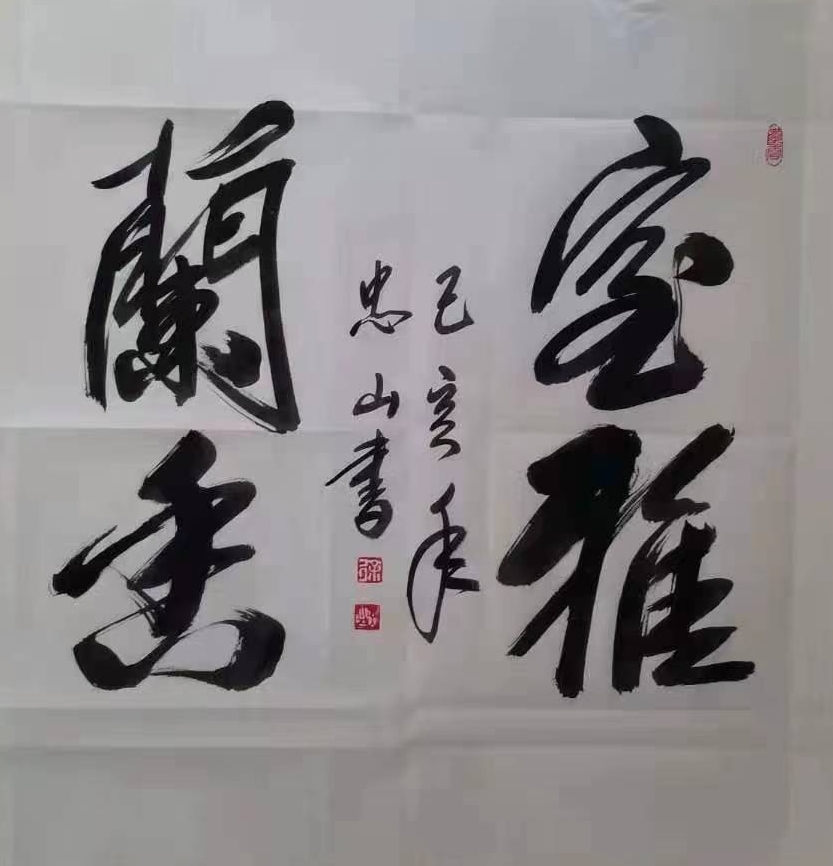 室雅
蘭香
己亥年
忠山書